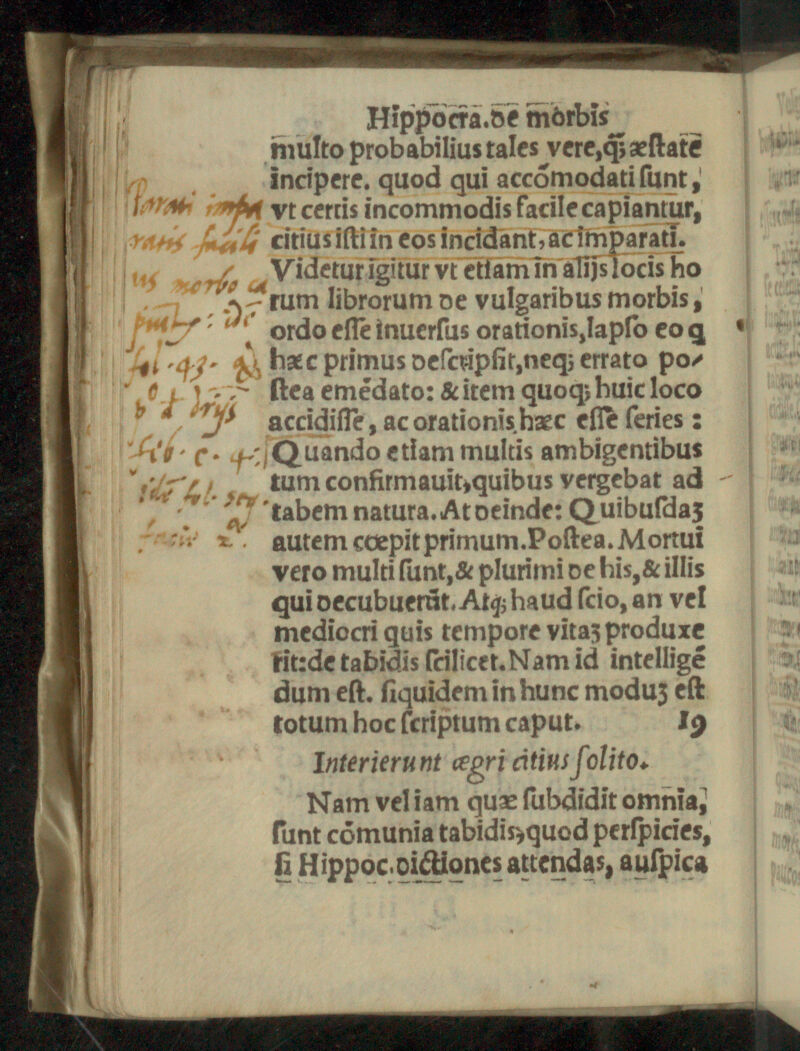 Hippocra.de morbis
multo probabilius tales vere,q̃ꝫ æſtate
incipere. quod qui accõmodati ſunt,
vt certis incommodis facile capiantur,
citius iſti in eos incidant, ac imparati.
Videtur igitur vt etiam in alijs locis ho
rum librorum de vulgaribus morbis,
ordo eſſe inuerſus orationis, lapſo eo q
hæc primus deſcripſit, neqꝫ errato po-
ſtea emẽdato: & item quoqꝫ huic loco
accidiſſe, ac orationis hæc eſſe ſeries:
Quando etiam multis ambigentibus
tum confirmauit, quibus vergebat ad
tabem natura. At deinde: Quibuſdaꝫ
autem cœpit primum. Poſtea. Mortui
vero multi ſunt, & plurimi de his, & illis
qui decubuerũt. Atqꝫ haud ſcio, an vel
mediocri quis tempore vitaꝫ produxe
rit: de tabidis ſcilicet. Nam id intelligẽ
dum eſt. ſiquidem in hunc moduꝫ eſt
totum hoc ſcriptum caput. 19
Interierunt ægri citius ſolito.
Nam vel iam quæ ſubdidit omnia,
ſunt cõmunia tabidis, quod perſpicies,
ſi Hippoc. dictiones attendas, auſpica